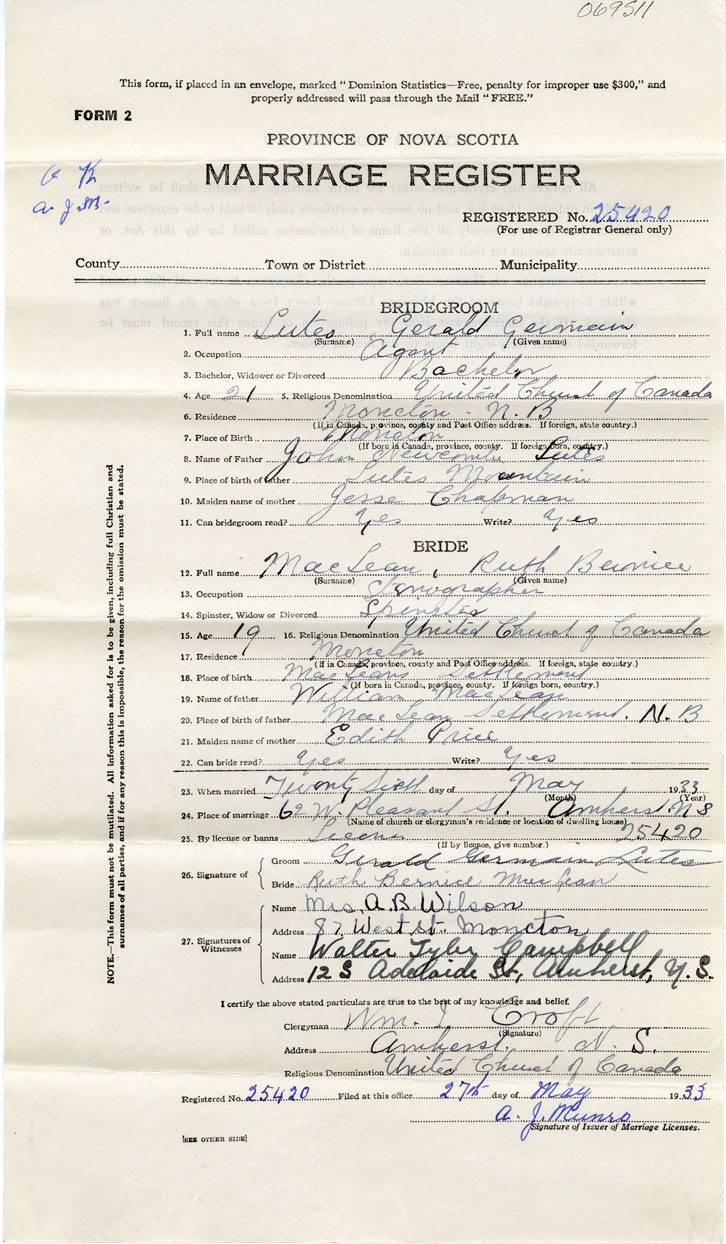 069511
This form, if placed in an envelope, marked "Dominion Statistics—Free, penalty for improper use $300," and
properly addressed will pass through the Mail "FREE."
FORM 2
PROVINCE OF NOVA SCOTIA
MARRIAGE REGISTER
O K
A. J. M.
REGISTERED No. 25420
(For use of Registrar General only)
County Town or District Municipality
BRIDEGROOM
1. Full name Lutes Gerald Germain
(Surname) (Given name)
2. Occupation Agent
3. Bachelor, Widower or Divorced Bachelor
4. Age 21 5. Religious Denomination United Church of Canada
6. Residence Moncton - N.B
(If in Canada, province, county and Post Office address. If foreign, state country.)
7. Place of Birth Moncton
(If born in Canada, province, county. If foreign born, country.)
8. Name of Father John Newcomb Lutes
9. Place of birth of father Lutes Mountain
10. Maiden name of mother Jesse Chapman
11. Can bridegroom read? Yes Write? Yes
BRIDE
12. Full name MacLean, Ruth Bernice
(Surname) (Given name)
13. Occupation Stenographer
14. Spinster, Widow or Divorced Spinster
15. Age 19 16. Religious Denomination United Church of Canada
17. Residence Moncton
(If in Canada, province, county and Post Office address. If foreign, state country.)
18. Place of birth MacLeans Settlement
(If born in Canada, province, county. If foreign born, country.)
19. Name of father William MacLean
20. Place of birth of father MacLean Settlement. N.B
21. Maiden name of mother Edith Price
22. Can bride read? Yes Write? Yes
23. When married Twenty Sixth day of May 1933
(Month) (Year)
24. Place of marriage 62 W. Pleasant St. Amherst N S
(Name of church or clergyman's residence or location of dwelling house)
25. By license or banns License 25420
(If by licence, give number.)
26. Signature of
Groom Gerald Germain Lutes
Bride Ruth Bernice MacLean
27. Signatures of Witnesses
Name Mrs. A.B. Wilson
Address 87 West St. Moncton
Name Walter Tyler Campbell
Address 12 S Adelaide St, Amherst, N.S.
I certify the above stated particulars are true to the best of my knowledge and belief.
Clergyman Wm. J Croft
(Signature)
Address Amherst. N. S.
Religious Denomination United Church of Canada
Registered No. 25420 Filed at this office 27th day of May 1933
A. J. Munro
Signature of Issuer of Marriage Licenses.
[SEE OTHER SIDE]
NOTE.—This form must not be mutilated. All information asked for is to be given, including full Christian and
surnames of all parties, and if for any reason this is impossible, the reason for the omission must be stated.